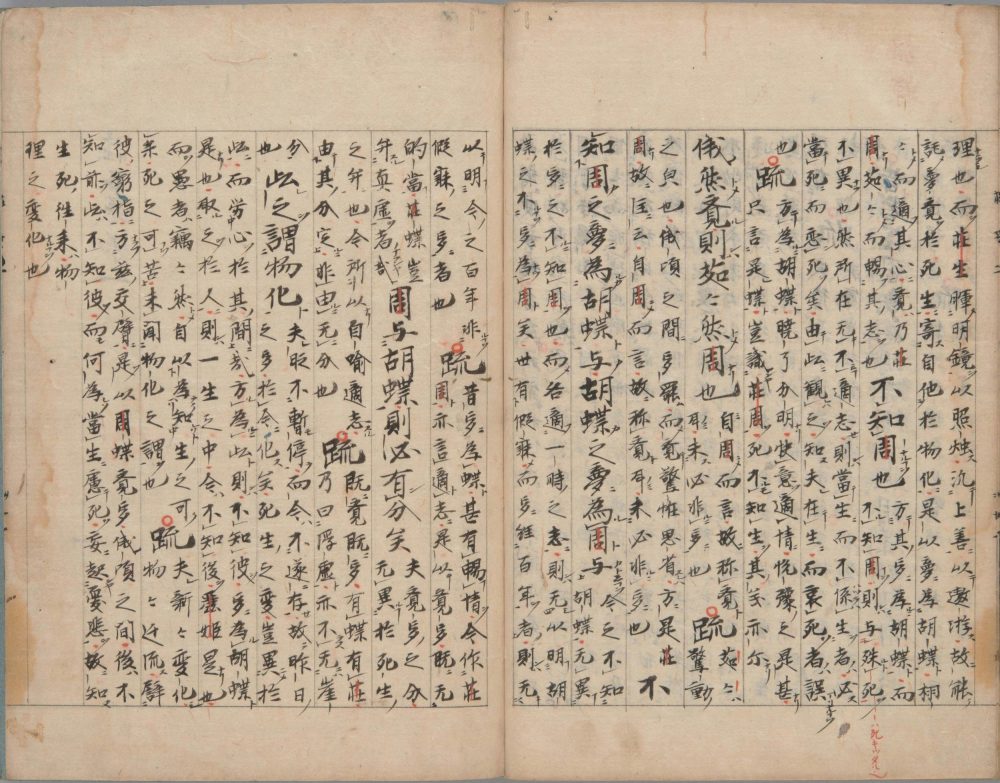 理也而莊生暉明鏡以照燭汎上善以遨游故能
託夢覺於死生寄自他於物化是以夢為胡蝶栩
々而適其心覺乃莊周茹々而暢其志也 不知周也 方其夢為胡蝶而不知周則与殊死
不異也然所在无不適志則當生而不係生者必
當死而恋死矣由此觀之知夫在生而哀死者誤
也 疏 方為胡蝶曉了分明快意適情悅豫之甚
只言是蝶豈識莊周死不知生其義亦尓
俄然覺則茹々然周也 自周而言故称覺
耳未必非夢也 疏 茹々驚動
之皃也俄頃之間夢罷而覺驚恠思省方是莊
周故注云自周而言故称覺耳未必非夢也 不
知周之夢為胡蝶与胡蝶之夢為周与 今之不知
胡蝶无異
於夢之不知周也而各適一時之志則无以明胡
蝶之不夢為周矣世有假寐而夢經百年者則无
以明今之百年非
假寐之夢者也 疏 昔夢為蝶甚有暢情今作莊
周亦言適志是以覺夢既无
的當莊蝶豈
弁真虛者哉 周与胡蝶則必有分矣 夫覺夢之分
无異於死生
之弁也今所以自喻適志
由其分定非由无分也 疏 既覺既夢有蝶有莊
乃曰浮虛亦不无崖
分
也 此之謂物化 夫取不暫停而今不遂存故昨日
之夢於今化矣死生之變豈異於
此而劳心於其間哉方為此則不知彼夢為胡蝶
是也取之於人則一生之中今不知後麗姬是也
而愚者竊々然自以為知生之可
樂死之可苦未聞物化之謂也 疏 夫新々變化
物々迁流譬
彼窮指方兹交臂是以周蝶覺夢俄頃之間後不
知前此不知彼而何為當生慮死妄起憂悲故知
生死徃来物
理之變化也